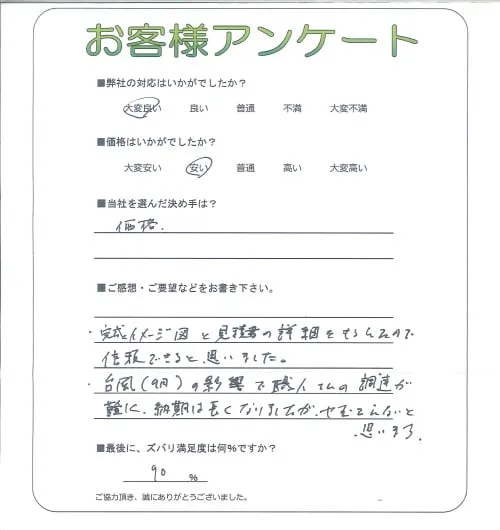 お客様アンケート
■弊社の対応はいかがでしたか？
大変良い 良い 普通 不満 大変不満
■価格はいかがでしたか？
大変安い 安い 普通 高い 大変高い
■当社を選んだ決め手は？
価格.
■ご感想・ご要望などをお書き下さい。
・完成イメージ図と見積書の詳細をもらえたので
信頼できると思いました。
・台風(9月)の影響で職人さんの調達が
に、納期は長くなりましたが、やむをえないと
思います.
■最後に、ズバリ満足度は何%ですか？
90 %
ご協力頂き、誠にありがとうございました。